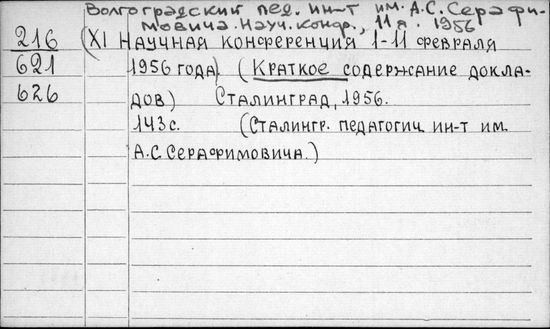 Волгоградский пед. ин-т им. А.С. Серафи-
мовича. Науч. конф., 11я. 1956
216 (XI Научная конференция 1-11 февраля
621 1956 года) (Краткое содержание докла-
626 дов) Сталинград, 1956.
143с. (Сталингр. педагогич. ин-т им.
А.С Серафимовича.)